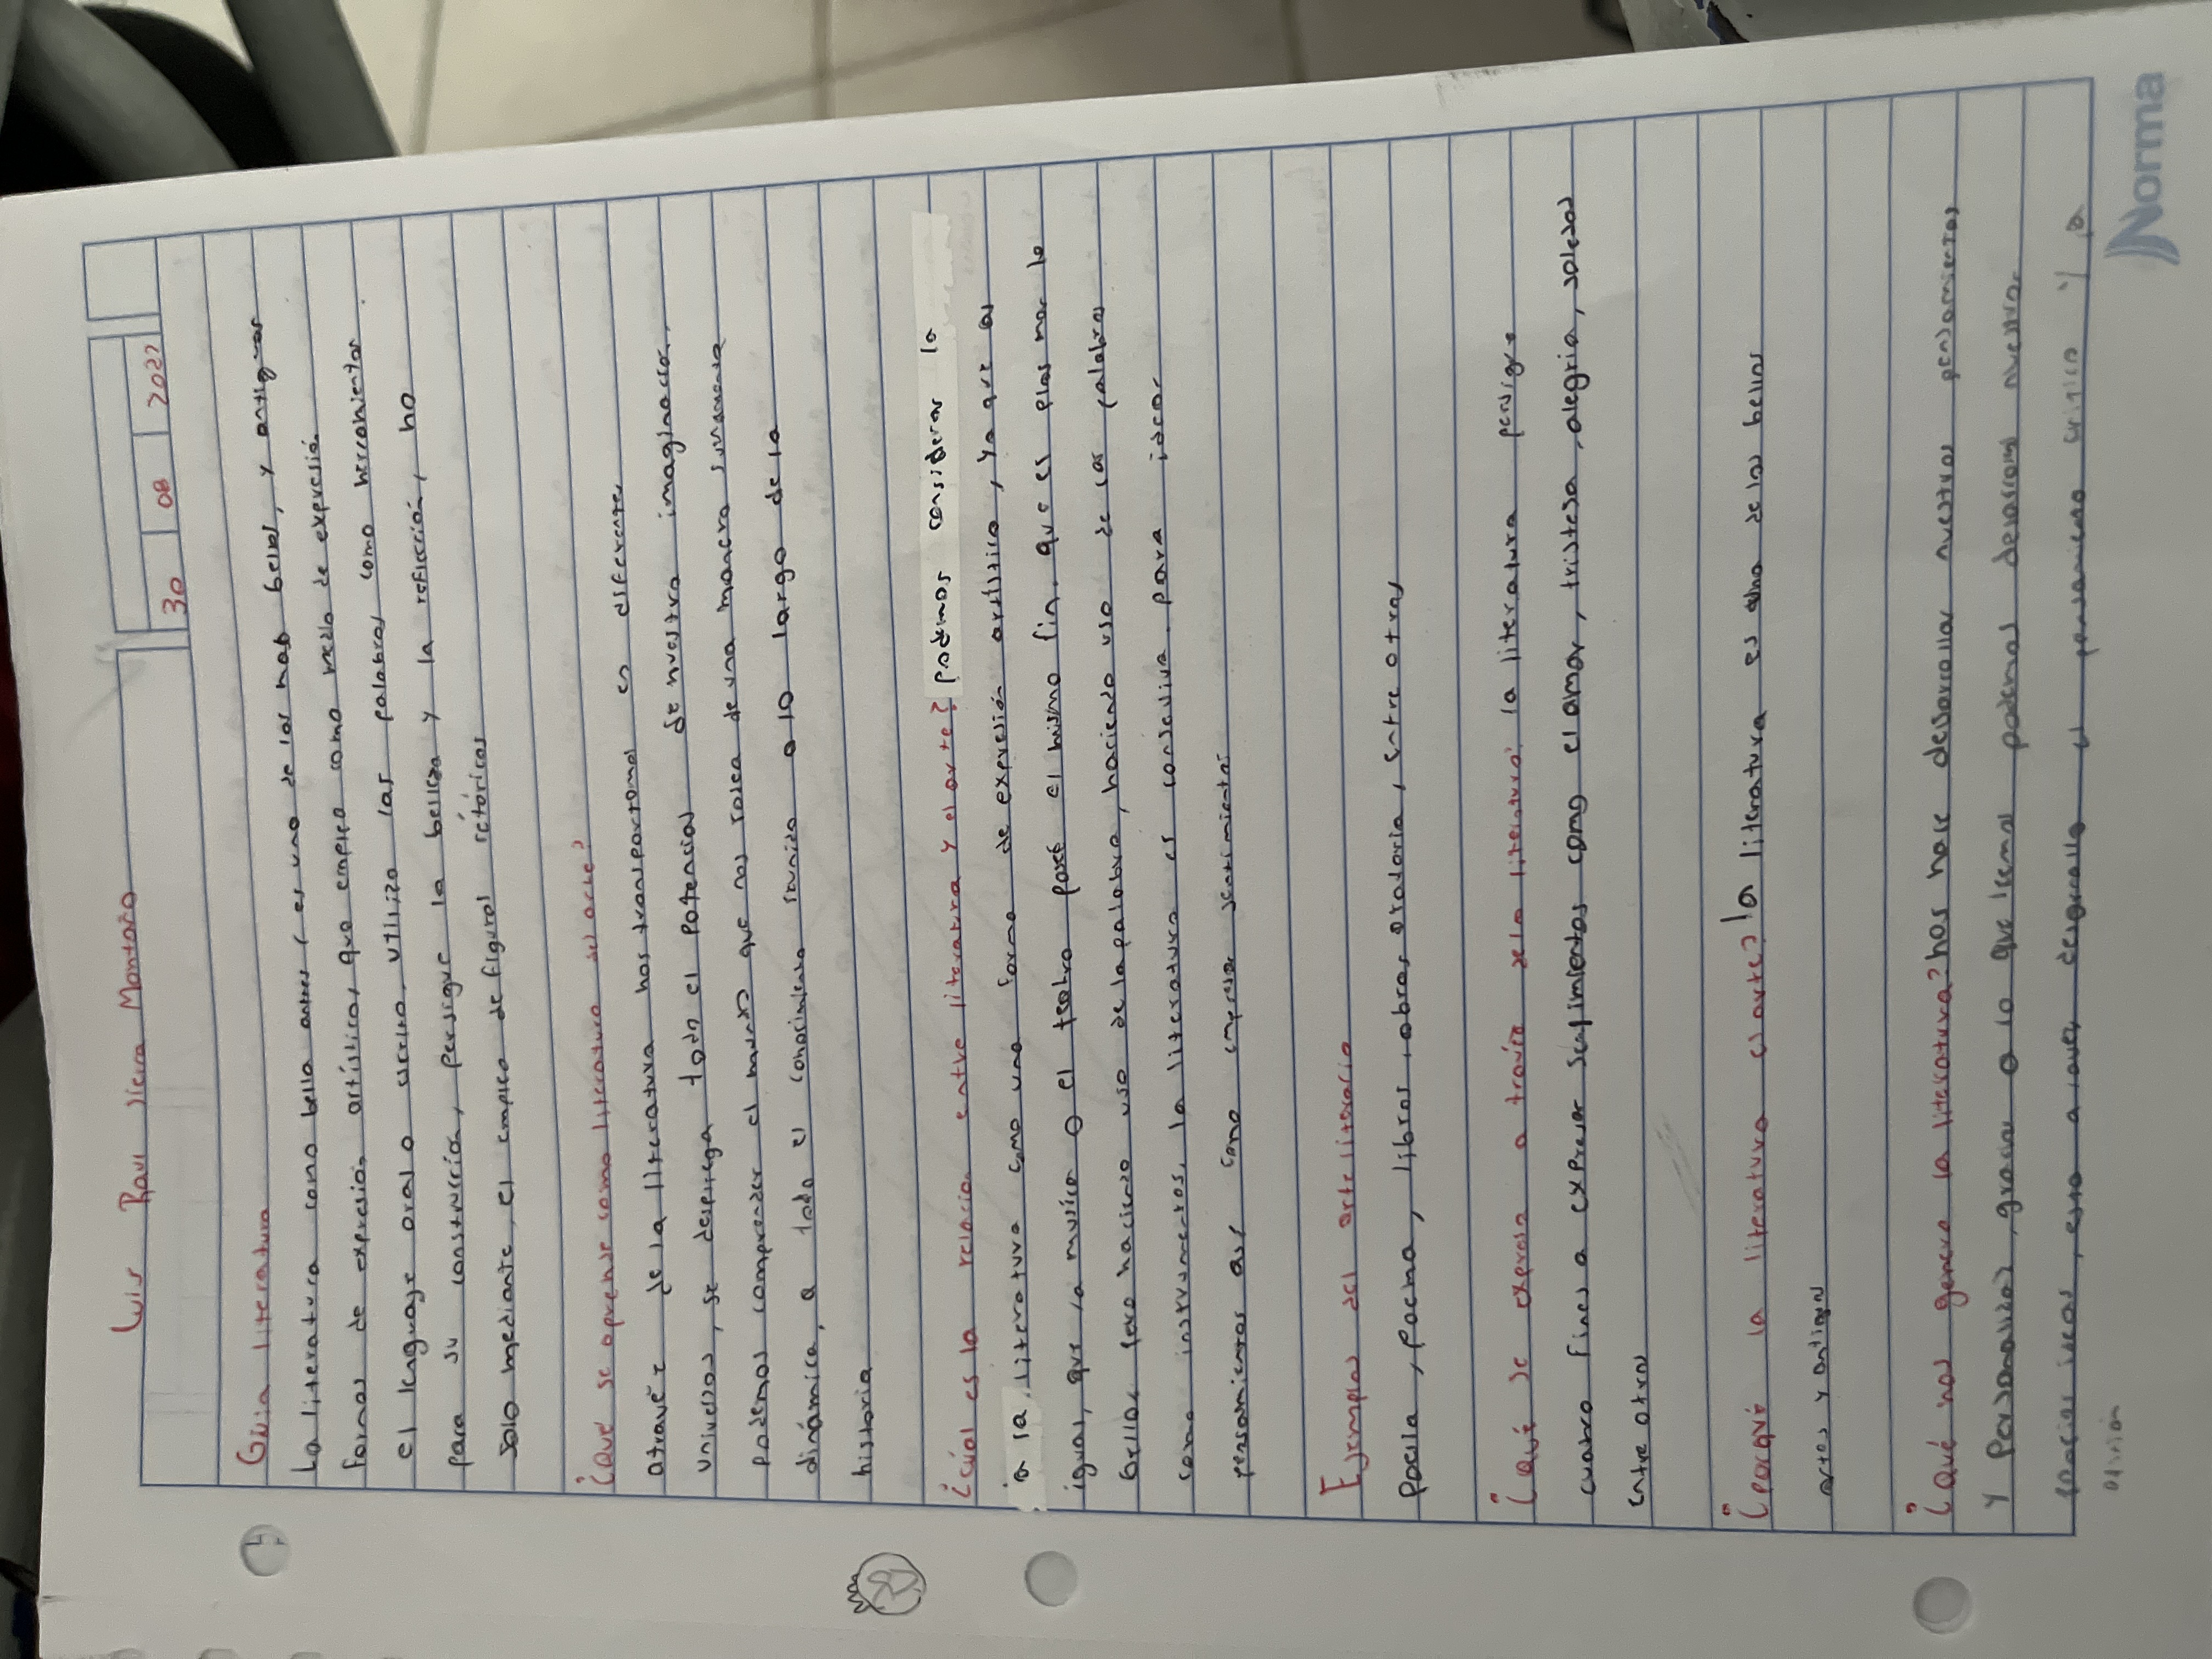 Luis Raul Sierra Montaño
30 08 2022
Guia literatura
La literatura como bella artes, es uno de las mas bellas, y antiguas
formas de expresión artística, que emplea como medio de expresión
el lenguaje oral o escrito. utiliza las palabras como herramientas
para su construcción, persigue la belleza y la reflección, no
solo mediante el empleo de figuras retóricas
¿Qué se aprende como literatura del arte?
através de la literatura nos transportamos es diferentes
universos, se despliega todo el potencial de nuestra imaginación.
podemos comprender el mundo que nos rodea de una manera sumamente
dinámica, a todo el conocimiento reunido a lo largo de la
historia
¿cúal es la relacion entre literatura y el arte? podemos considerar la
a la literatura como una forma de expresión artística, ya que al
igual, que la musica o el teatro poseé el mismo fin. que es plasmar lo
bello, pero haciendo uso de la palabra, haciendo uso de las palabras
como instrumentos, la literatura es para idear
pensamientos así como expresar sentimientos
Ejemplos del arte literario
Poesia, poema, libros, obras oratoria, entre otras
¿Qué se expresa a través de la literatura? la literatura persigue
cuatro fines a expresar sentimientos como el amor, tristesa, alegria, soledad
entre otros
¿porqué la literatura es arte? la literatura es una de las bellas
artes y antiguas
¿Qué nos genera la literatura? nos hace desarrollar nuestros pensamientos
y personalidad, gracias a lo que leemos podemos desarrollar nuestras
propias ideas, esto a la vez desarrolla el pensamiento critico y la
opinión
Norma